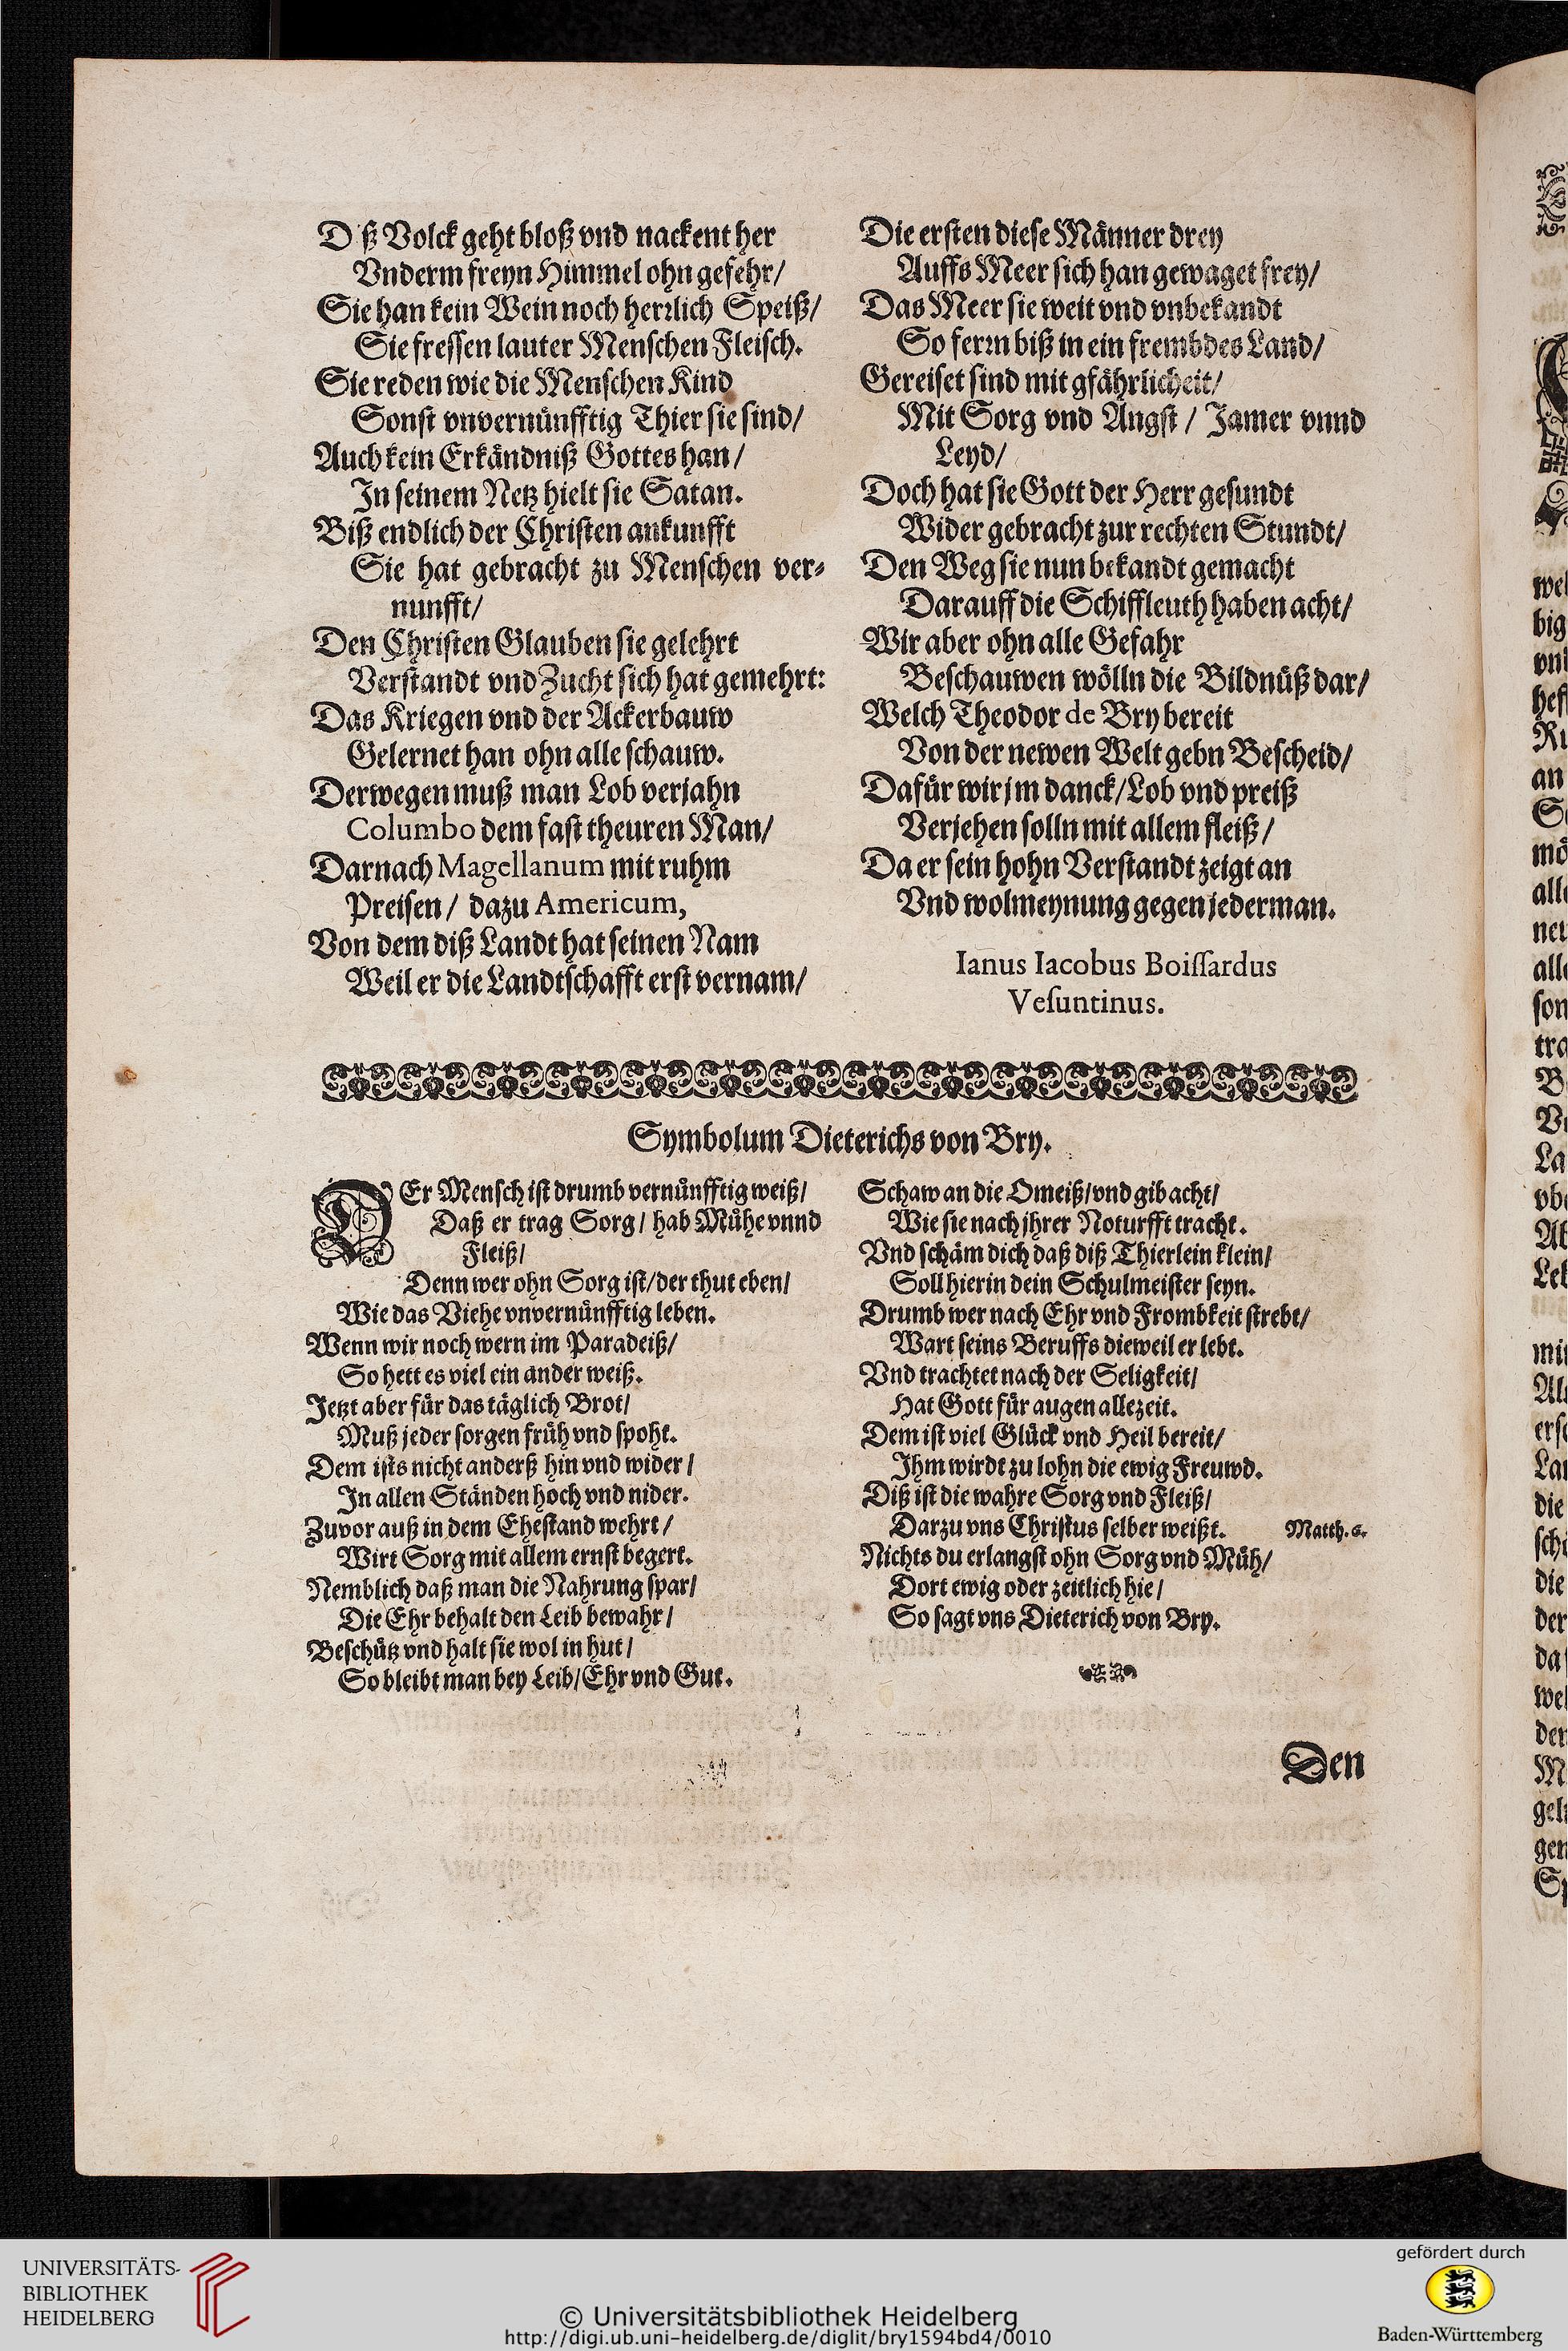 D ß Volck geht bloß vnd nackent her
Vnderm freyn Himmel ohn gefehr/
Sie han kein Wein noch herꝛlich Speiß/
Sie fressen lauter Menschen Fleisch.
Sie reden wie die Menschen Kind
Sonst vnvernünfftig Thier sie sind/
Auch kein Erkändniß Gottes han/
In seinem Netz hielt sie Satan.
Biß endlich der Christen ankunfft
Sie hat gebracht zu Menschen ver-
nunfft/
Den Christen Glauben sie gelehrt
Verstandt vnd Zucht sich hat gemehrt:
Das Kriegen vnd der Ackerbauw
Gelernet han ohn alle schauw.
Derwegen muß man Lob verjahn
Columbo dem fast theuren Man/
Darnach Magellanum mit ruhm
Preisen/ dazu Americum,
Von dem diß Landt hat seinen Nam
Weil er die Landtschafft erst vernam/
Die ersten diese Männer drey
Auffs Meer sich han gewaget frey/
Das Meer sie weit vnd vnbekandt
So ferꝛn biß in ein frembdes Land/
Gereiset sind mit gfährlicheit/
Mit Sorg vnd Angst/ Jamer vnnd
Leyd/
Doch hat sie Gott der Herr gesundt
Wider gebracht zur rechten Stundt/
Den Weg sie nun bekandt gemacht
Darauff die Schiffleuth haben acht/
Wir aber ohn alle Gefahr
Beschauwen wölln die Bildnüß dar/
Welch Theodor de Bry bereit
Von der newen Welt gebn Bescheid/
Dafür wir jm danck/Lob vnd preiß
Verjehen solln mit allem fleiß/
Da er sein hohn Verstandt zeigt an
Vnd wolmeynung gegen jederman.
Ianus Iacobus Boiſſardus
Veſuntinus.
Symbolum Dieterichs von Bry.
DEr Mensch ist drumb vernünfftig weiß/
Daß er trag Sorg/ hab Mühe vnnd
Fleiß/
Denn wer ohn Sorg ist/der thut eben/
Wie das Viehe vnvernünfftig leben.
Wenn wir noch wern im Paradeiß/
So hett es viel ein ander weiß.
Jetzt aber für das täglich Brot/
Muß jeder sorgen früh vnd spoht.
Dem ists nicht anderß hin vnd wider/
In allen Ständen hoch vnd nider.
Zuvor auß in dem Ehestand wehrt/
Wirt Sorg mit allem ernst begert.
Nemblich daß man die Nahrung spar/
Die Ehr behalt den Leib bewahr/
Beschütz vnd halt sie wol in hut/
So bleibt man bey Leib/Ehr vnd Gut.
Schaw an die Omeiß/vnd gib acht/
Wie sie nach jhrer Noturfft tracht.
Vnd schäm dich daß diß Thierlein klein/
Soll hierin dein Schulmeister seyn.
Drumb wer nach Ehr vnd Frombkeit strebt/
Wart seins Beruffs dieweil er lebt.
Vnd trachtet nach der Seligkeit/
Hat Gott für augen allezeit.
Dem ist viel Glück vnd Heil bereit/
Ihm wirdt zu lohn die ewig Freuwd.
Diß ist die wahre Sorg vnd Fleiß/
Darzu vns Christus selber weißt. Matth. 6.
Nichts du erlangst ohn Sorg vnd Müh/
Dort ewig oder zeitlich hie/
So sagt vns Dieterich von Bry.
Den
UNIVERSITÄTS-
BIBLIOTHEK
HEIDELBERG
© Universitätsbibliothek Heidelberg
http://digi.ub.uni-heidelberg.de/diglit/bry1594bd4/0010
gefördert durch
Baden-Württemberg